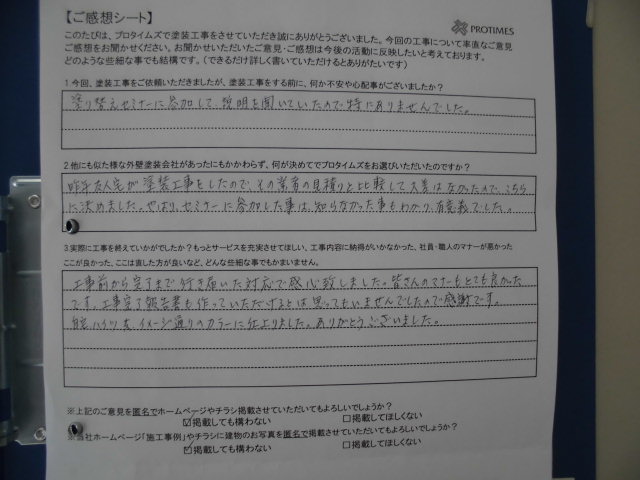 【ご感想シート】
PROTIMES
このたびは、プロタイムズで塗装工事をさせていただき誠にありがとうございました。今回の工事について率直なご意見
ご感想をお聞かせください。お聞かせいただいたご意見・ご感想は今後の活動に反映したいと考えております。
どのような些細な事でも結構です。（できるだけ詳しく書いていただけるとありがたいです）
1.今回、塗装工事をご依頼いただきましたが、塗装工事をする前に、何か不安や心配事がございましたか？
塗り替えセミナーに参加して、説明を聞いていたので特にありませんでした。
2.他にも似た様な外壁塗装会社があったにもかかわらず、何が決めてでプロタイムズをお選びいただいたのですか？
昨年友人宅が塗装工事をしたので、その業者の見積りと比較して大差はなかったので、こちら
に決めました。やはり、セミナーに参加した事は、知らなかった事もわかり、有意義でした。
3.実際に工事を終えていかがでしたか？もっとサービスを充実させてほしい、工事内容に納得がいかなかった、社員・職人のマナーが悪かった
ここが良かった、ここは直した方が良いなど、どんな些細な事でもかまいません。
工事前から完了まで行き届いた対応で感心致しました。皆さんのマナーもとても良かった
です。工事完了報告書も作っていただけるとは思ってもいませんでしたので感謝です。
自宅、ハイツ共、イメージ通りのカラーに仕上りました。ありがとうございました。
※上記のご意見を匿名でホームページやチラシ掲載させていただいてもよろしいでしょうか？
☑掲載しても構わない □掲載してほしくない
※当社ホームページ「施工事例」やチラシに建物のお写真を匿名で掲載させていただいてもよろしいでしょうか？
☑掲載しても構わない □掲載してほしくない